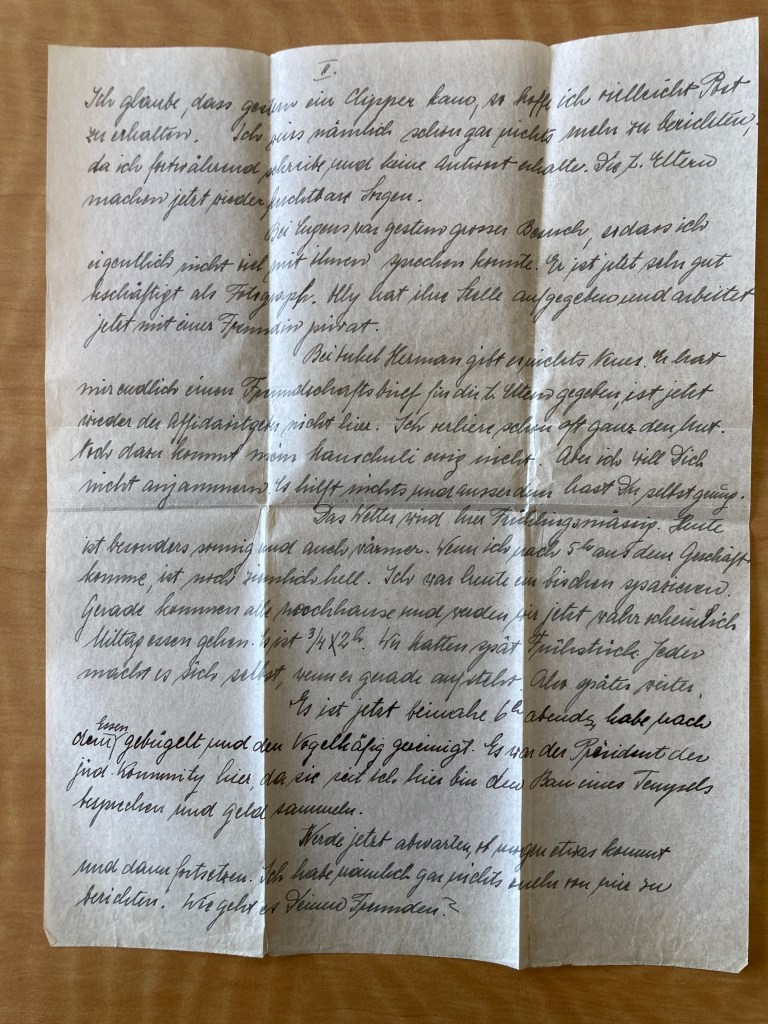 II.
Ich glaube, dass gestern ein Clipper kam, so hoffe ich vielleicht Post
zu erhalten. Ich weiss nämlich schon gar nichts mehr zu berichten,
da ich fortwährend schreibe und keine Antwort erhalte. Die l. Eltern
machen jetzt wieder furchtbare Sorgen.
Bei Eugens war gestern grosser Besuch, sodass ich
eigentlich nicht viel mit ihnen sprechen konnte. Er ist jetzt sehr gut
beschäftigt als Fotograph. Elly hat ihre Stelle aufgegeben und arbeitet
jetzt mit einer Freundin privat.
Bei Herman gibt es nichts Neues. Er hat
mir endlich einen Freundschaftsbrief für die l. Eltern gegeben, ist jetzt
wieder der Affidavitgeber nicht hier. Ich verliere schon oft ganz den Mut.
Noch dazu kommt mein ewig nicht. Aber ich will Dich
nicht anjammern. Es hilft nichts und ausserdem hast Du selbst genug.
Das Wetter wird hier Frühlingsmässig. Heute
ist besonders sonnig und auch wärmer. Wenn ich nach 5 Uhr aus dem Geschäft
komme, ist noch ziemlich hell. Ich war heute ein bischen spazieren.
Gerade kommen alle nachhause und werden wir jetzt wahrscheinlich
Mittagessen gehen. Es ist 3/4 2 h. Wir hatten spät Frühstück. Jeder
macht es sich selbst, wenn er gerade aufsteht. Also später weiter.
Es ist jetzt beinahe 6 h abends, habe nach
dem Essen gebügelt und den Vogelkäfig gereinigt. Es war der Präsident der
jüd. Komunity hier, da sie seit ich hier bin den Bau eines Tempels
besprechen und Geld sammeln.
Werde jetzt abwarten, ob morgen etwas kommt
und dann fortsetzen. Ich habe nämlich gar nichts mehr von mir zu
berichten. Wie geht es Deinen Freunden?